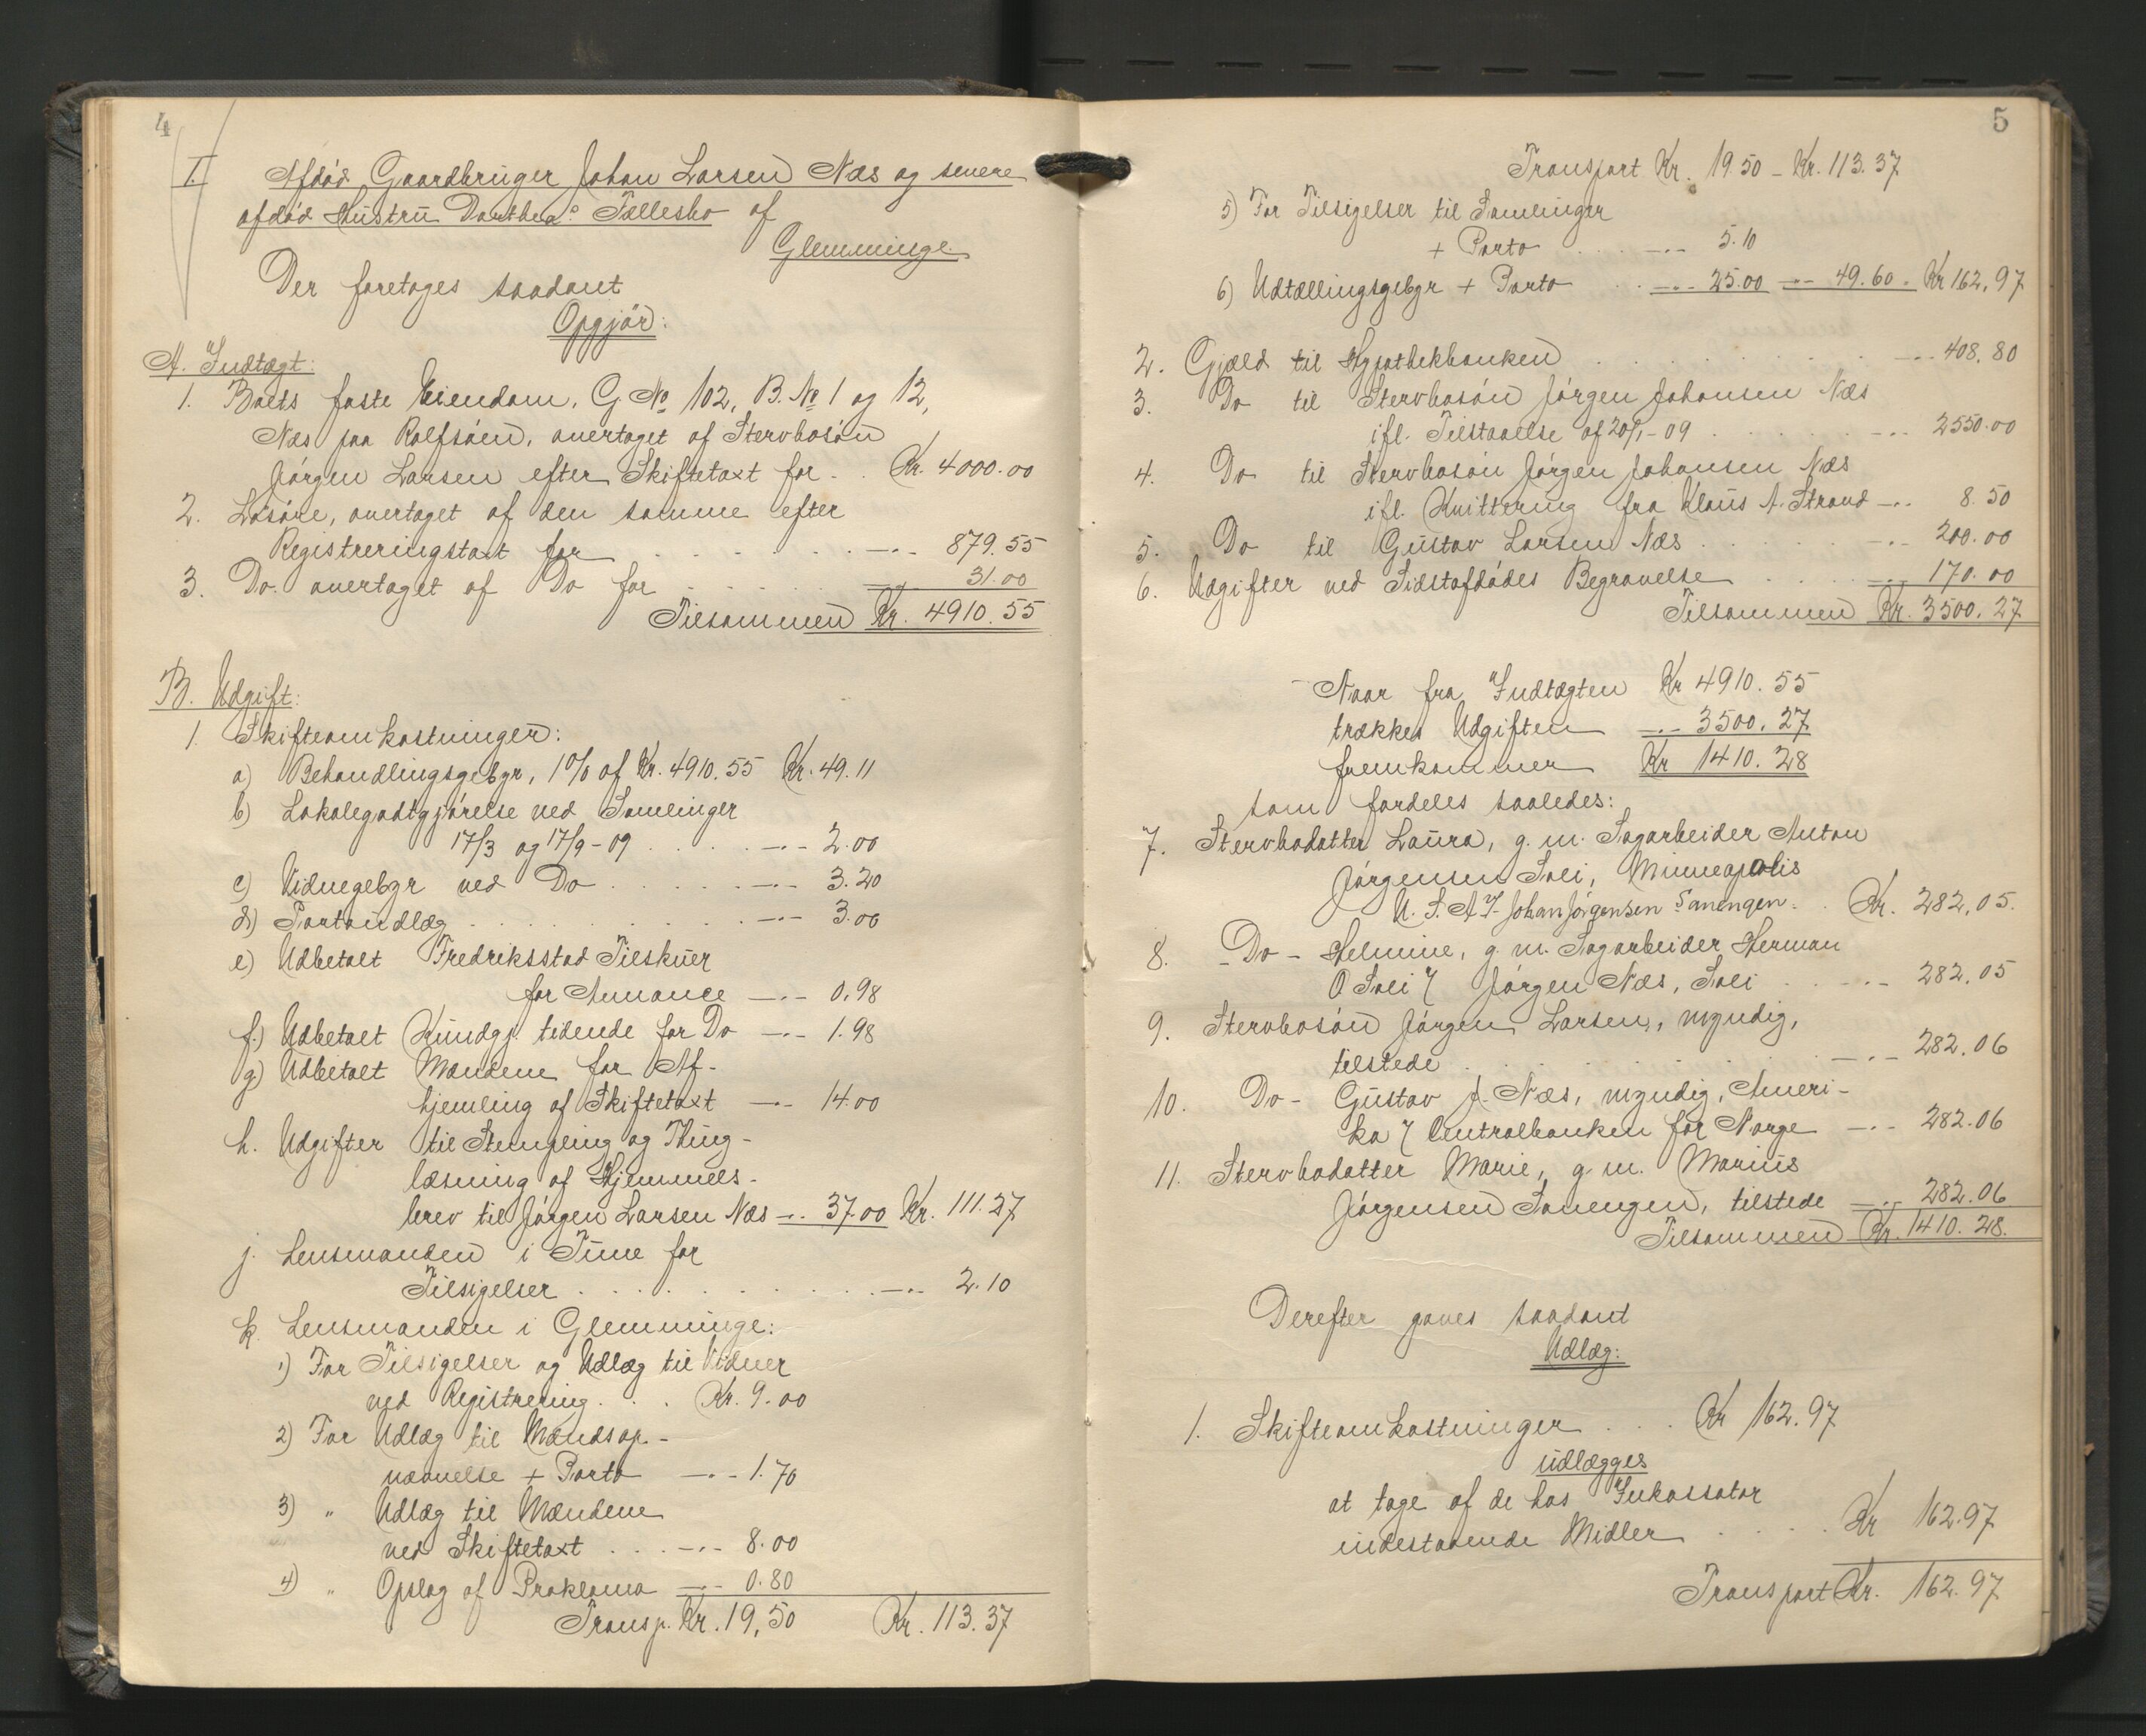 4
I. Afdød Gaardbruger Johan Larsen Næs og senere
afdød Hustru Dorthea's Fællesbo af
Glemminge
Der foretages saadant
Opgjør:
A. Indtægt:
1. Boets faste Eiendom, G No 102, B. No 1 og 12,
Næs paa Rolfsøen, overtaget af Stervbosøn
Jørgen Larsen efter Skiftetaxt for . . Kr. 4000.00
2. Løsøre, overtaget af den samme efter
Registreringstaxt for . . . . . . —..- 879.55
3. Do. overtaget af Do for . . . . . —..- 31.00
Tilsammen Kr. 4910.55
B. Udgift:
1. Skifteomkostninger:
a) Behandlingsgebyr, 1 0/0 af Kr. 4910.55 Kr. 49.11
b) Lokalegodtgjørelse ved Samlinger
17/3 og 17/9 - 09 . . . . . —..- 2.00
c) Vidnegebyr ved Do . . . . . —..- 3.20
d) Portoudlæg . . . . . . . . —..- 3.00
e) Udbetalt Fredriksstad Tilskuer
for Annonce —..- 0.98
f.) Udbetalt Kundgj. tidende for Do —..- 1.98
g) Udbetalt Mændene for Af-
hjemling af Skiftetaxt —..- 14.00
h. Udgifter til Stempling og Thing-
læsning af Hjemmels-
brev til Jørgen Larsen Næs —..- 37.00 Kr. 111.27
j. Lensmanden i Tune for
Tilsigelser . . . . . . . . . . —..- 2.10
k. Lensmanden i Glemminge:
1) For Tilsigelser og Udlæg til Vidner
ved Registrering . . . Kr. 9.00
2) For Udlæg til Mændsop-
nævnelse + Porto —..- 1.70
3) " Udlæg til Mændene
ved Skiftetaxt . . . —..- 8.00
4) " Opslag af Proklama —..- 0.80
Transp. Kr. 19,50 Kr. 113.37
5
Transport Kr. 19.50 - Kr. 113.37
5) For Tilsigelser til Samlinger
+ Porto . . . —..- 5.10
6) Udtællingsgebyr + Porto . . —..- 25.00 —..- 49.60. Kr 162,97
2. Gjæld til Hypothekbanken . . . . . . . . —..- 408.80
3. Do til Stervbosøn Jørgen Johansen Næs
ifl. Tilstaaelse af 20/1 - 09 . . . . . . —..- 2550.00
4. Do til Stervbosøn Jørgen Johansen Næs
ifl. Kvittering fra Klaus A. Strand —..- 8.50
5. Do til Gustav Larsen Næs . . . . . —..- 200.00
6. Udgifter ved Sidstafdødes Begravelse . . . . —..- 170.00
Tilsammen Kr. 3500.27
Naar fra Indtægten Kr 4910.55
trækkes Udgiften —..- 3500.27
fremkommer Kr 1410.28
som fordeles saaledes:
7. Stervbodatter Laura, g. m. Sagarbeider Anton
Jørgensen Soli, Minneapolis
U. S. A. Johan Jørgensen Sanengen . . Kr. 282,05.
8. - Do - Helmine, g. m. Sagarbeider Herman
O Soli Jørgen Næs, Soli . . —..- 282.05
9. Stervbosøn Jørgen Larsen, myndig,
tilstede . . . . . . . . . —..- 282.06
10. Do - Gustav J. Næs, myndig, Ameri-
ka Centralbanken for Norge —..- 282.06
11. Stervbodatter Marie, g. m. Marius
Jørgensen Sanengen, tilstede —..- 282.06
Tilsammen Kr. 1410.28.
Derefter gaves saadant
Udlæg:
1. Skifteomkostninger . . . Kr 162.97
udlægges
at tage af de hos Inkassator
indestaaende Midler . . . . . Kr 162.97
Transport Kr. 162.97